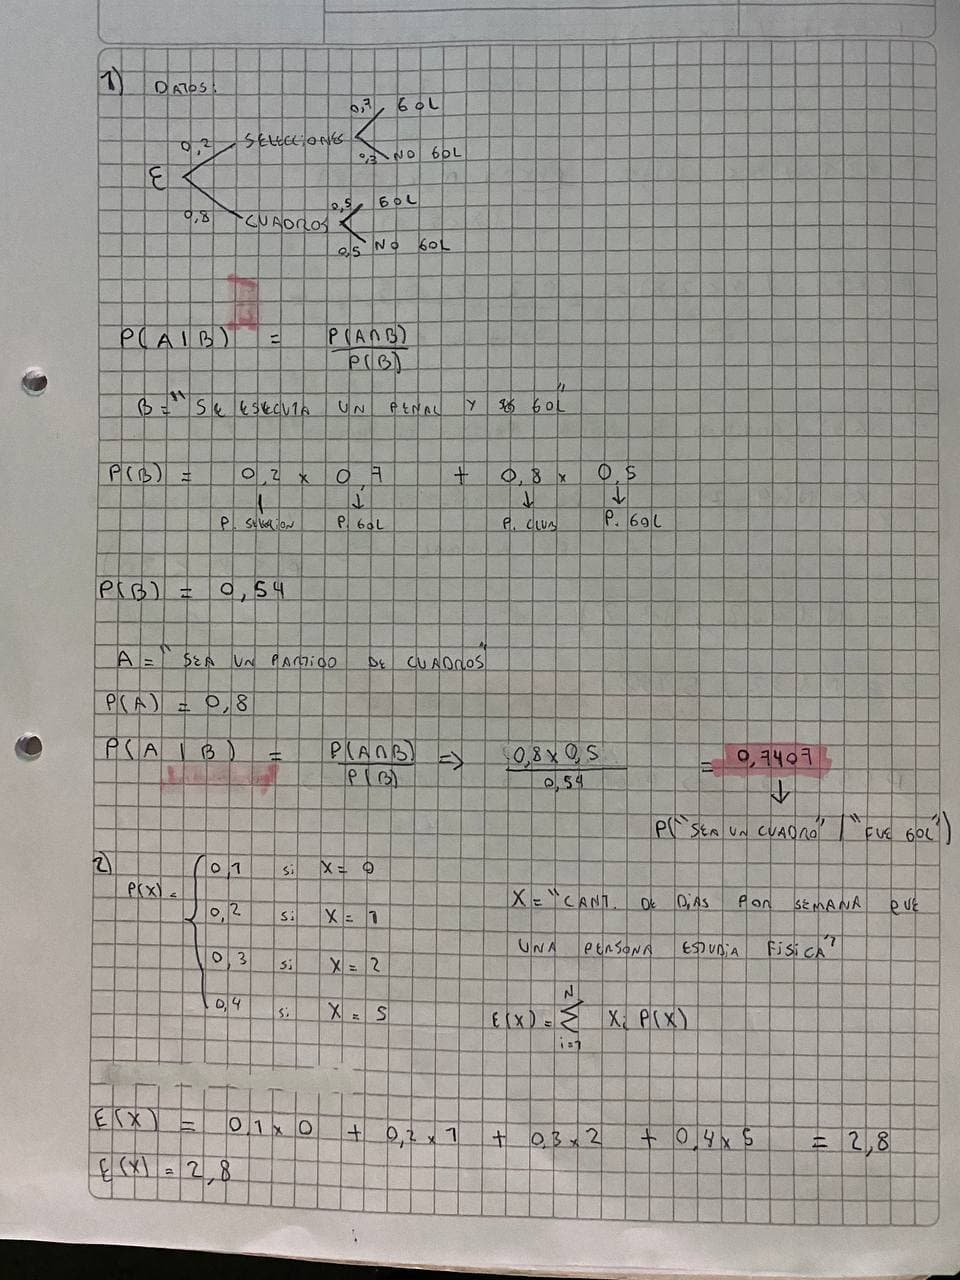 1) DATOS:
0,7 GOL
0,2 SELECCIONES
0,3 NO GOL
E
0,5 GOL
0,8 CUADROS
0,5 NO GOL
P(A|B) = P(A∩B)
P(B)
B = "SE EJECUTA UN PENAL Y ES GOL"
P(B) = 0,2 x 0,7 + 0,8 x 0,5
P. SELECCION P. GOL P. CLUB P. GOL
P(B) = 0,54
A = "SEA UN PARTIDO DE CUADROS"
P(A) = 0,8
P(A|B) = P(A∩B) => 0,8 x 0,5 = 0,7407
P(B) 0,54
P("SEA UN CUADRO" / "FUE GOL")
2) P(X) =
0,1 si X = 0
0,2 si X = 1
0,3 si X = 2
0,4 si X = 5
X = "CANT. DE DIAS POR SEMANA QUE
UNA PERSONA ESTUDIA FISICA"
N
E(X) = Σ Xi P(X)
i=1
E(X) = 0,1 x 0 + 0,2 x 1 + 0,3 x 2 + 0,4 x 5 = 2,8
E(X) = 2,8